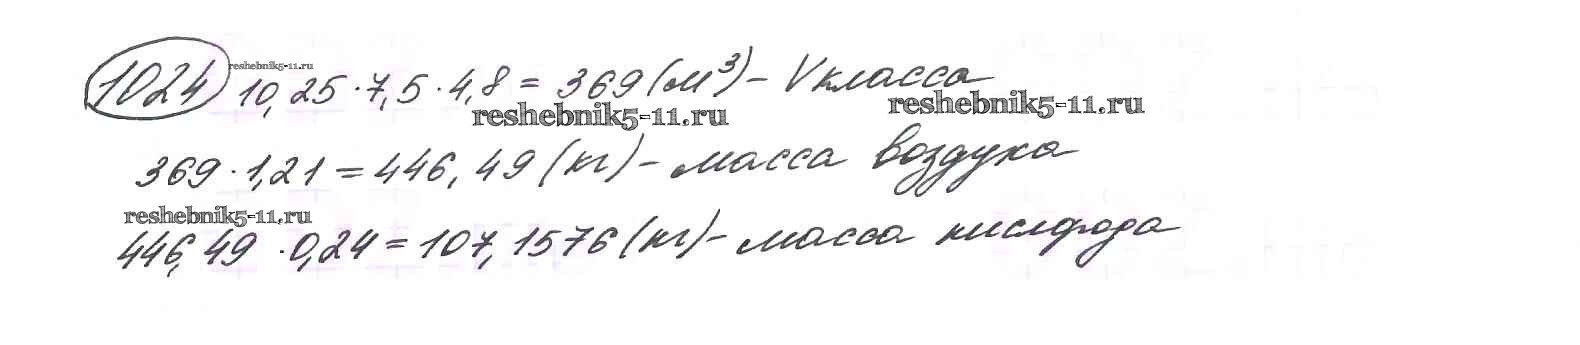 1024 reshebnik5-11.ru 10,25·7,5·4,8 = 369 (м³) – V класса
reshebnik5-11.ru reshebnik5-11.ru
369·1,21 = 446,49 (кг) – масса воздуха
reshebnik5-11.ru
446,49·0,24 = 107,1576 (кг) – масса кислорода